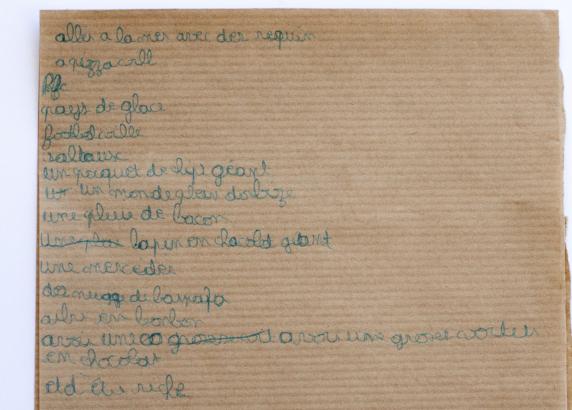 aller a la mer avec des requin
a pizzacoll
pays de glace
footbolville
un paquet de lys géant
un monde plein do
une pluie de bacon
lapin en chacolat géant
une mercedes
des nugg de
arbre en bonbon
avoir une avoir une grosse voiture
en chocolat
etd éu riche